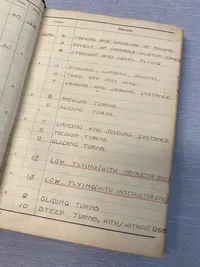 TAXYING AND HANDLING OF ENGINE.
EFFECT OF CONTROLS
STRAIGHT AND LEVEL FLYING.
STALLING, CLIMBING, GLIDING.
TAKE OFF INTO WIND.
LANDING AND JUDGING DISTANCE
8 MEDIUM TURNS.
9 GLIDING TURNS.
7 LANDING AND JUDGING DISTANCE
8 MEDIUM TURNS.
9 GLIDING TURNS
12 LOW FLYING (WITH INSTRUCTOR ONLY)
LOW FLYING (WITH INSTRUCTOR ONLY)
9 GLIDING TURNS
10 STEEP TURNS, WITH/WITHOUT ENGINE